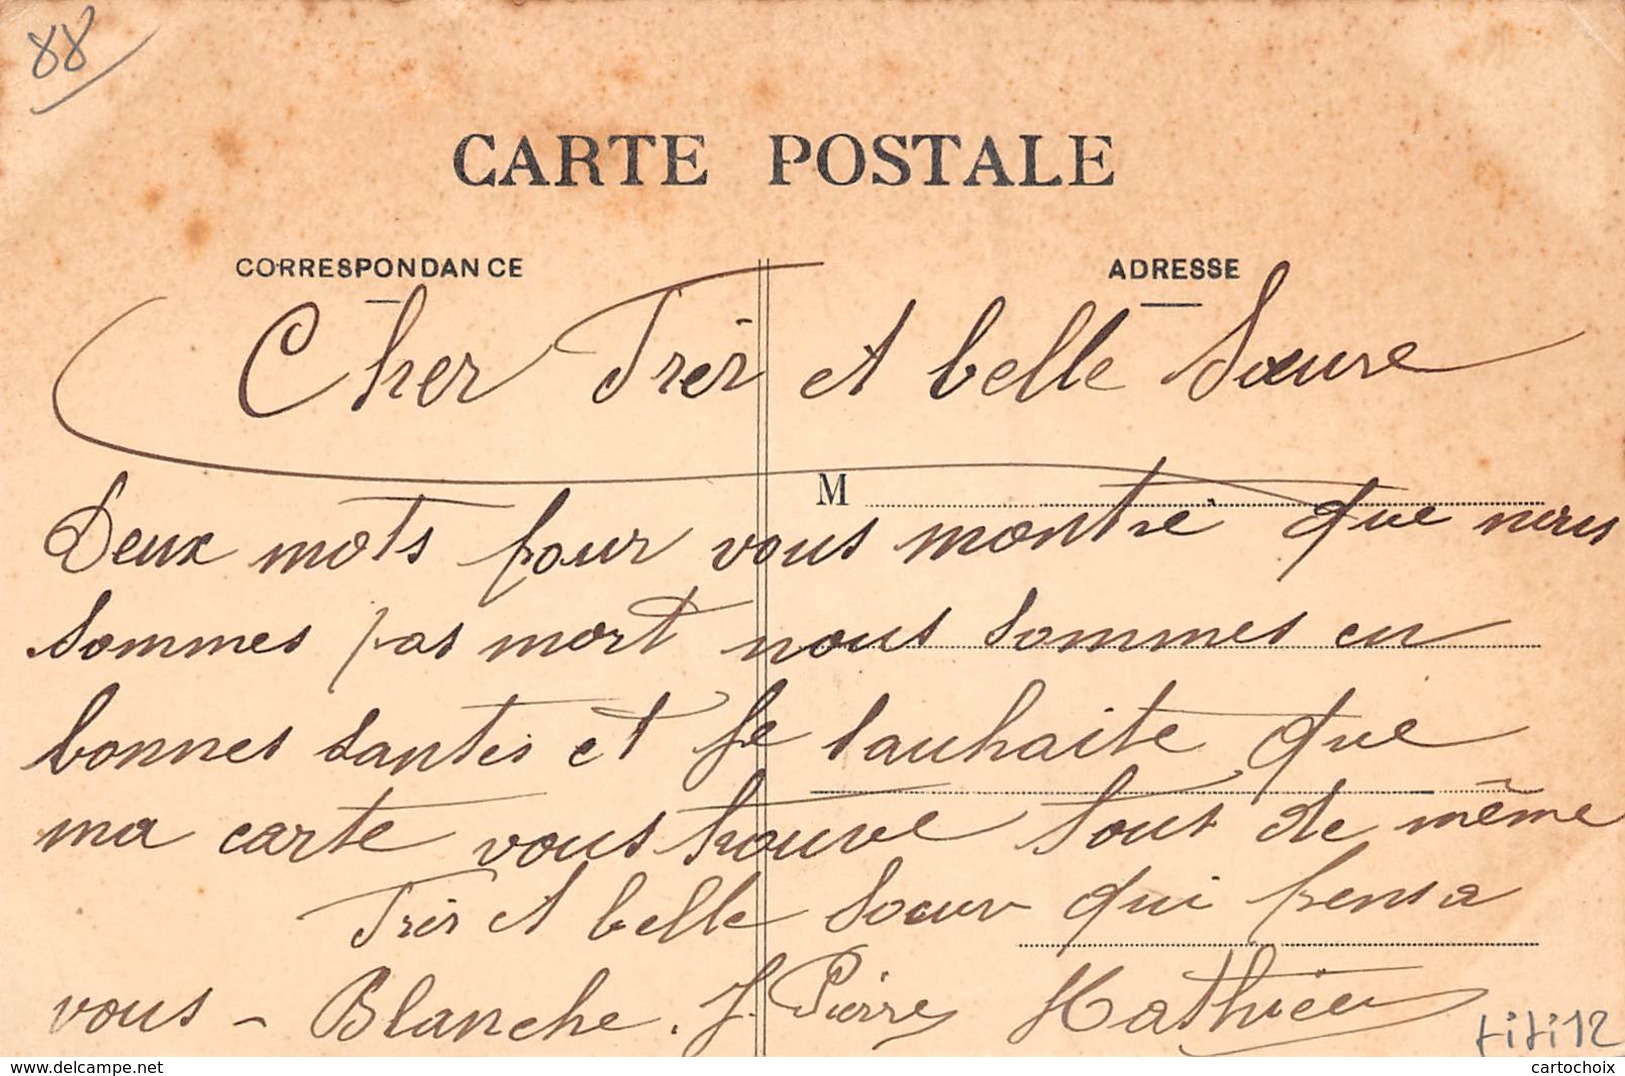 88
CARTE POSTALE
CORRESPONDANCE ADRESSE
Cher Frèr et belle Sœure
M
Deux mots pour vous montré que nous
sommes pas mort nous sommes en
bonnes santés et je sauhaite que
ma carte vous trouve tout de même
Frèr et belle Sœur qui pens a
vous - Blanche. J. Pierre Mathieu
titi12
delcampe.net cartochoix